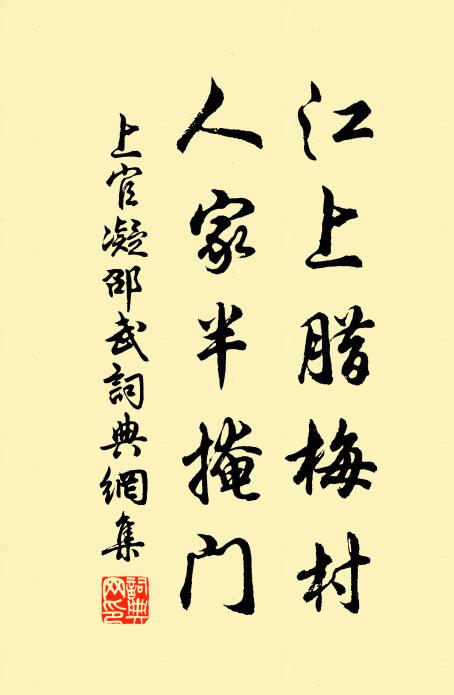 江上腊梅村
人家半掩门
上官凝邵武詞典網集
詞典網印